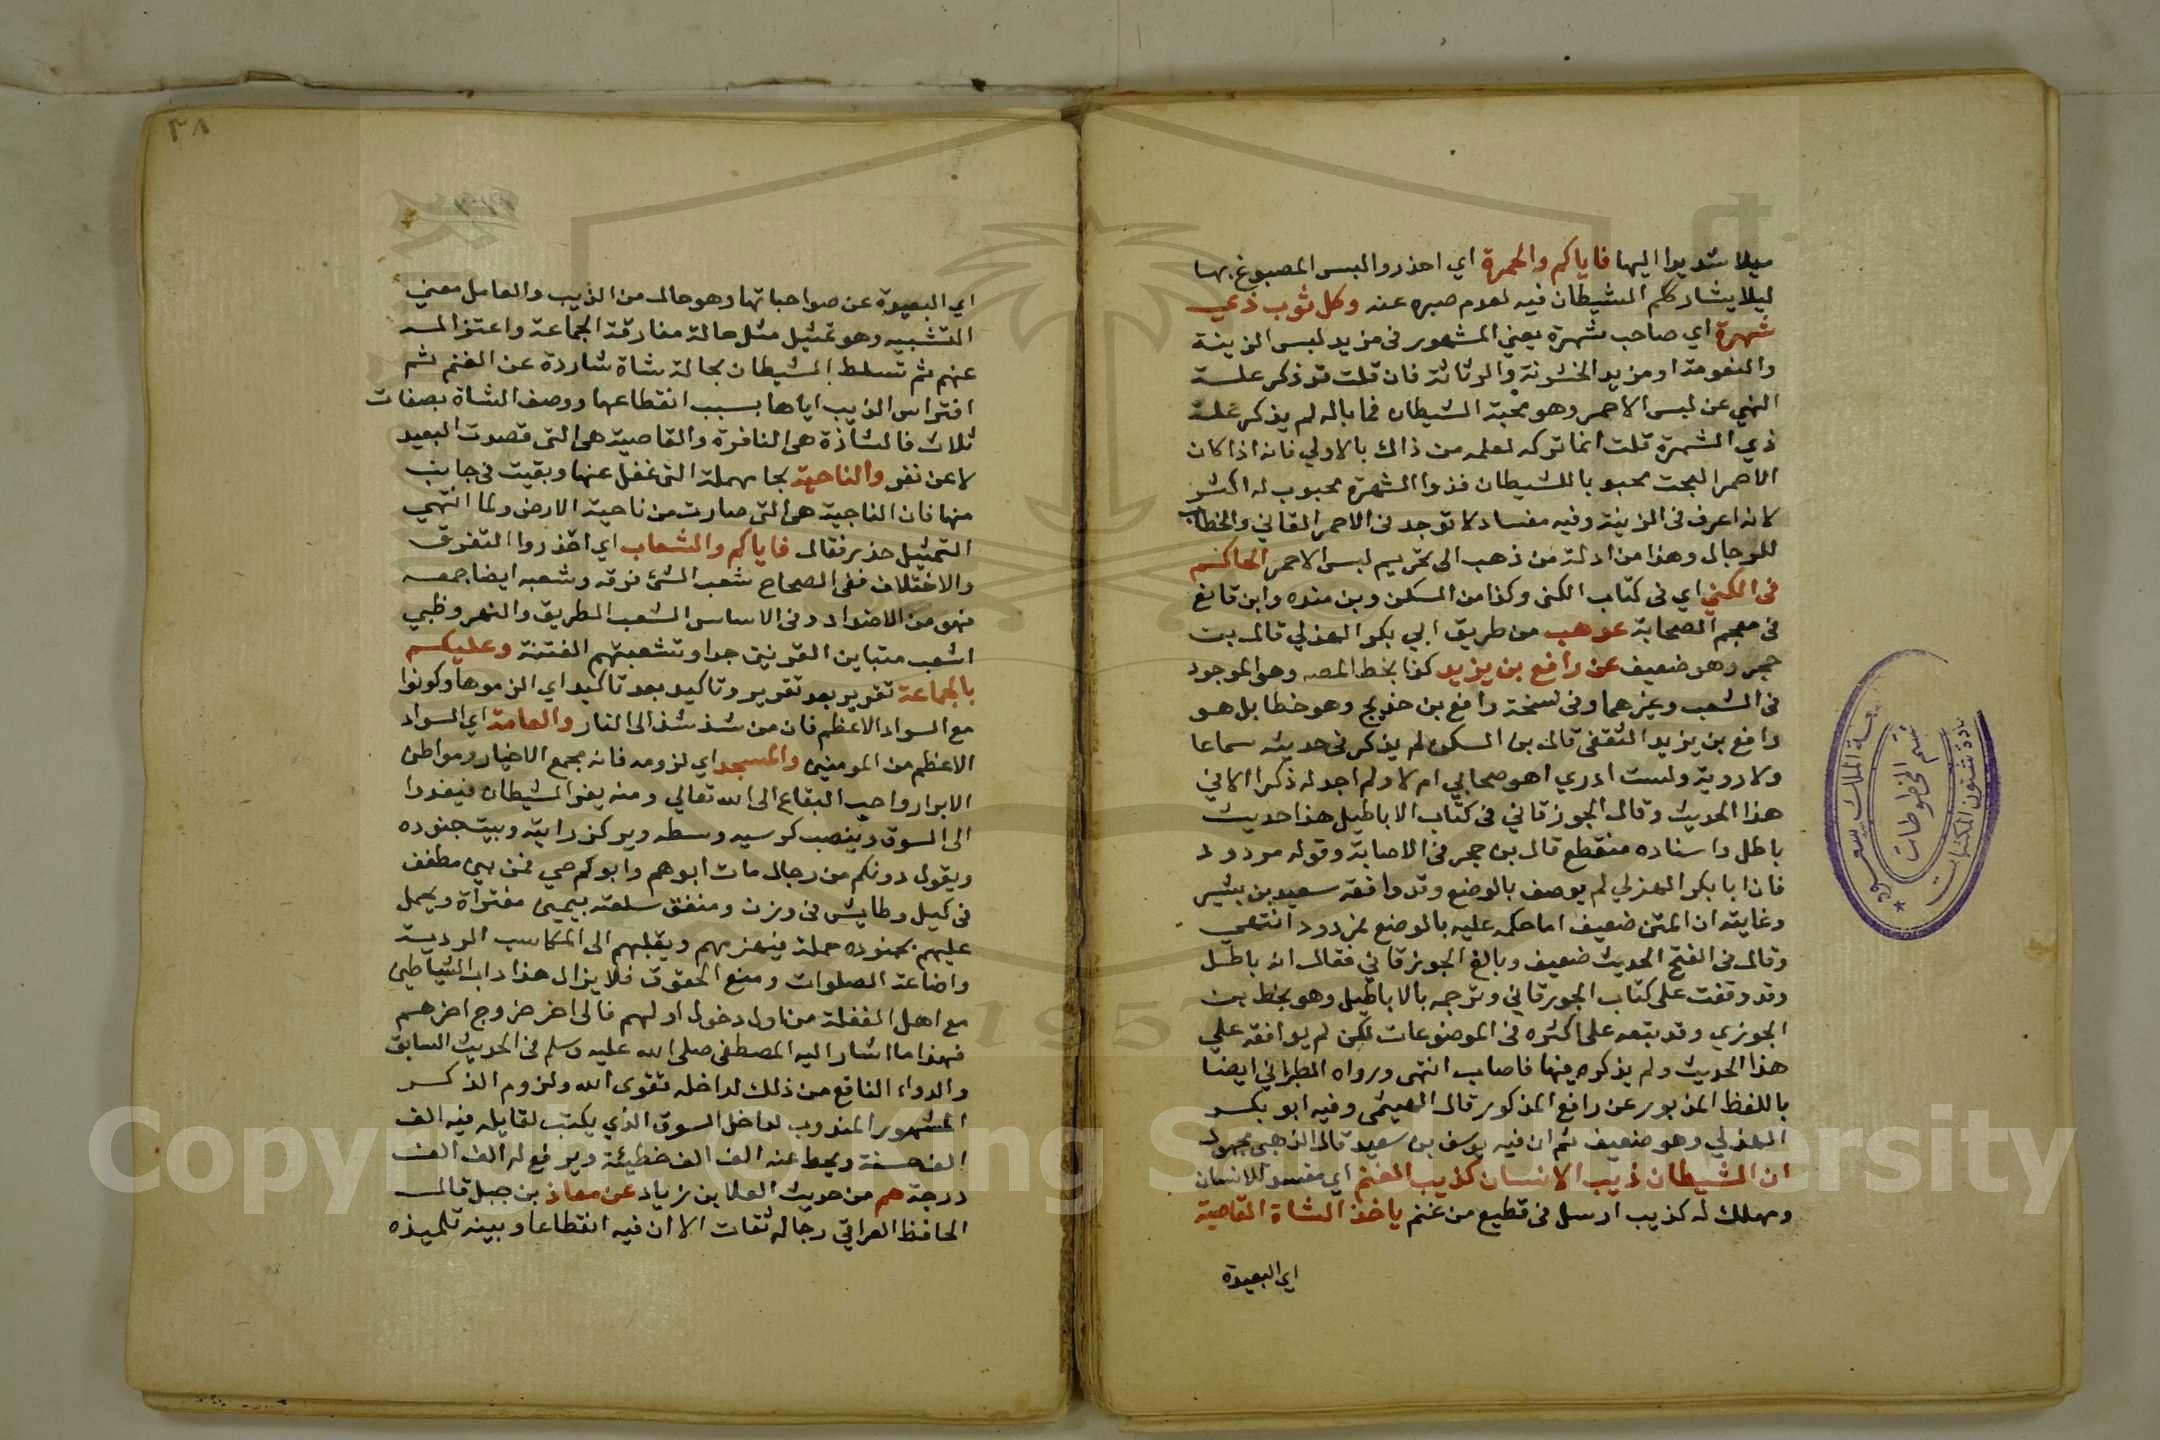 ميلا شديدا اليها فاياكم والحمرة اي احذروا لبس المصبوغ بها
ليلا يشارككم الشيطان فيه لعدم صبره عنه وكل ثوب ذي
شهرة اي صاحب شهرة يعني المشهور في مزيد لبس الزينة
والنعومة او مزيد الخشونة والرثاثة فان قلت قد ذكر علة
النهي عن لبس الاحمر وهو محبة الشيطان فما باله لم يذكر علة
ذي الشهرة قلت انما تركه لعلمه من ذاك بالاولي فانه اذا كان
الاحمر البحت محبوبا للشيطان فذوا الشهرة محبوب له اكثر
لانه اعرف في الزينة وفيه مفساد لا توجد في الاحمر القاني والخطاب
للرجال وهذا من ادلة من ذهب الى تحريم لبس الاحمر الحاكم
في الكني اي في كتاب الكنى وكذا من السكن وبن منده وابن قانع
في معجم الصحابة عد هب من طريق ابي بكر الهذلي قال بن
حجر وهو ضعيف عن رافع بن يزيد كذا بخط المصه وهو الموجود
في الشعب وغيرهما وفي نسخة رافع بن خديج وهو خطا بل هو
رافع بن يزيد الثقفي قال بن السكن لم يذكر في حديثه سماعا
ولا روية ولست ادري اهو صحابي ام لا ولم اجد له ذكرا الا في
هذا الحديث وقال الجوزقاني في كتاب الاباطيل هذا حديث
باطل واسناده منقطع قال بن حجر في الاصابة وقوله مردود
فان ابا بكر الهذلي لم يوصف بالوضع وقد وافقه سعيد بن بشير
وغايته ان المتن ضعيف اما حكمه عليه بالوضع فمردود انتهي
وقال في الفتح الحديث ضعيف وبالغ الجوزقاني فقال انه باطل
وقد وقفت على كتاب الجوزقاني وترجمه بالاباطيل وهو بخط بن
الجوزي وقد تبعه على اكثره في الموضوعات لكن لم يوافقه علي
هذا الحديث ولم يذكره فيها فاصاب انتهى ورواه الطبراني ايضا
باللفظ المزبور عن رافع المذكور قال الهيثمي وفيه ابو بكر
الهذلي وهو ضعيف ثم ان فيه يوسف بن سعيد قال الذهبي مجهول
ان الشيطان ذيب الانسان كذيب الغنم اي مفسد للانسان
ومهلك له كذيب ارسل في قطيع من غنم ياخذ الشاة القاصية
اي البعيدة
قسم المخطوطات
٣٨
اي البعيدة عن صواحباتها وهو حال من الذيب والعامل معني
التشبيه وهو تمثيل مثل حالة مفارقة الجماعة واعتزاله
عنهم ثم تسلط الشيطان بحالة شاة شاردة عن الغنم ثم
افتراس الذيب اياها بسبب انقطاعها ووصف الشاة بصفات
ثلاث فالشاذة هي النافرة والقاصية هي التي قصدت البعيد
لا عن نفر والناحية بحا مهملة التي غفل عنها وبقيت في جانب
منها فان الناحية هي التي صارت من ناحية الارض ولما انتهي
التمثيل حذر فقال فاياكم والشعاب اي احذروا التفرق
والاختلاف ففي الصحاح شعب الشئ فرقه وشعبه ايضا جمعه
فهو من الاضداد وفي الاساس الشعب الطريق والنهر وظبي
اشعب متباين القرنين جدا وتشعبتهم الفتنة وعليكم
بالجماعة تقرير بعد تقرير وتاكيد بعد تاكيد اي الزموها وكونوا
مع السواد الاعظم فان من شذ شذ الى النار والعامة اي السواد
الاعظم من المومنين والمسجد اي لزومه فانه مجمع الاخيار ومواطن
الابرار واحب البقاع الى الله تعالي ومنه يفر الشيطان فيغدوا
الى السوق وينصب كرسيه وسطه ويركز رايته ويبث جنوده
ويقول دونكم من رجال مات ابوهم وابوكم حي فمن بين مطفف
في كيل وطايش في وزن ومنفق سلعته بيمين مفتراة ويحمل
عليهم بجنوده حملة فيهزمهم ويقلبهم الى المكاسب الردية
واضاعة الصلوات ومنع الحقوق فلا يزال هذا داب الشياطين
مع اهل الغفلة من اول دخول اولهم فالى اخر خروج اخرهم
فهذا ما اشار اليه المصطفى صلى الله عليه وسلم في الحديث السابق
والدواء النافع من ذلك لداخله تقوى الله ولزوم الذكر
المشهور المندوب لداخل السوق الذي يكتب لقايله فيه الف
الف حسنة ويحط عنه الف الف خطيئة ويرفع له الف الف
درجة هم من حديث العلا بن زياد عن معاذ بن جبل قال
الحافظ العراقي رجاله ثقات الا ان فيه انقطاعا وبينه تلميذه
Copyright © King Saud University
195